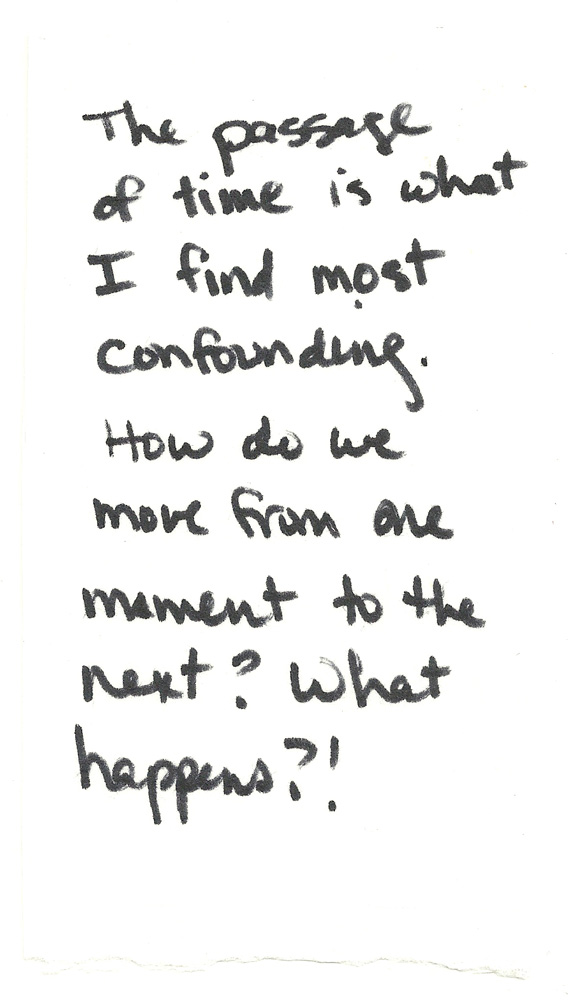 The passage
of time is what
I find most
confounding.
How do we
move from one
moment to the
next? What
happens?!